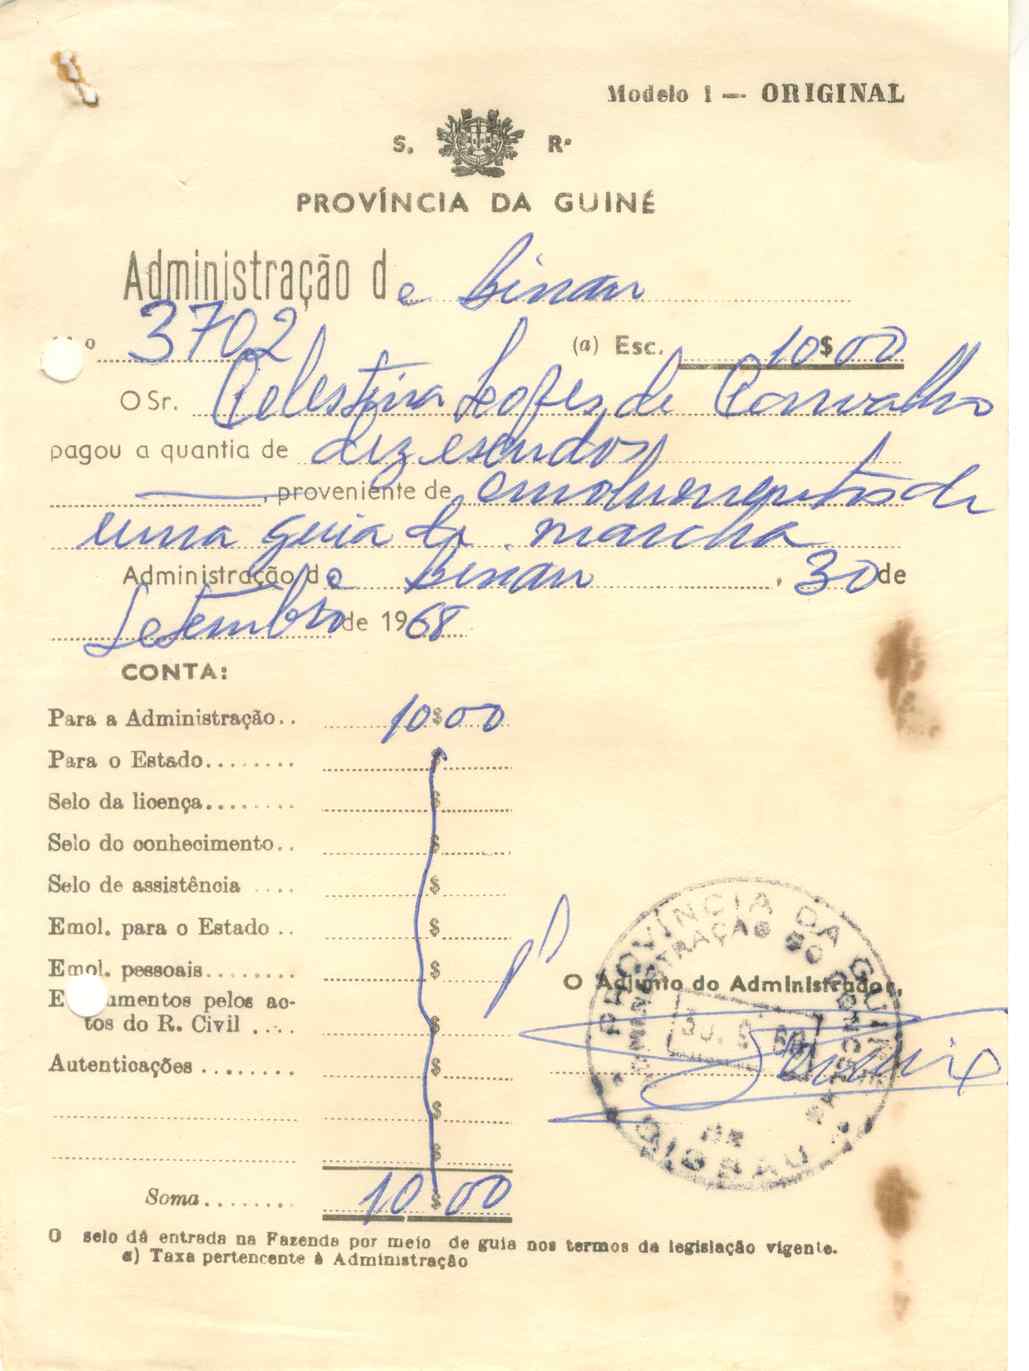 Modelo 1 — ORIGINAL
S. R.
PROVÍNCIA DA GUINÉ
Administração de Bissau
º 3702 (a) Esc. 10$00
O Sr. Celestina Lopes de Carvalho
pagou a quantia de dez escudos
, proveniente de emolumentos de
uma guia de marcha
Administração de Bissau, 30 de
Setembro de 1968
CONTA:
Para a Administração.. 10$00
Para o Estado........ $
Selo da licença........ $
Selo do conhecimento.. $
Selo de assistência .... $
Emol. para o Estado .. $
Emol. pessoais........ $
E umentos pelos ac-
tos do R. Civil .... $
Autenticações ........ $
$
$
Soma........ 10$00
O Adjunto do Administrador,
PROVÍNCIA DA GUINÉ
ADMINISTRAÇÃO DO CONCELHO
DE
BISSAU
30. 9. 68
O selo dá entrada na Fazenda por meio de guia nos termos da legislação vigente.
a) Taxa pertencente à Administração